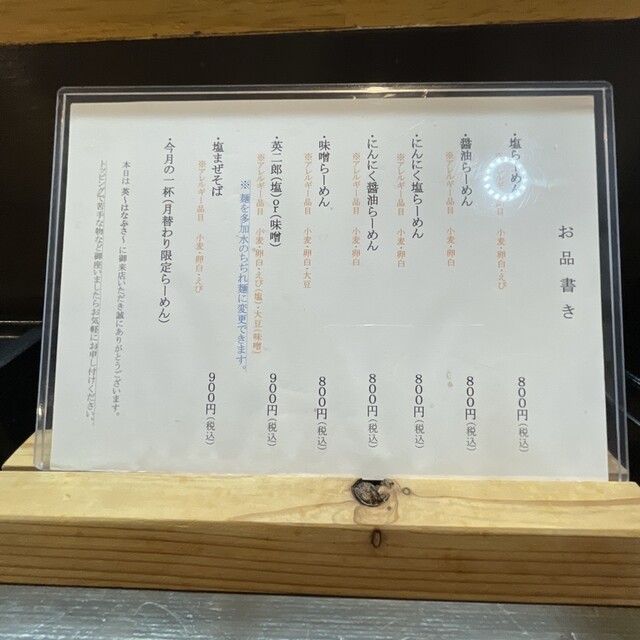 お品書き
・塩らーめん 800円(税込)
※アレルギー品目 小麦・卵白・えび
・醤油らーめん 800円(税込)
※アレルギー品目 小麦・卵白
・にんにく塩らーめん 800円(税込)
※アレルギー品目 小麦・卵白
・にんにく醤油らーめん 800円(税込)
※アレルギー品目 小麦・卵白
・味噌らーめん 800円(税込)
※アレルギー品目 小麦・卵白・大豆
・英二郎(塩)or(味噌) 900円(税込)
※アレルギー品目 小麦・卵白・えび(塩)・大豆(味噌)
※麺を多加水のちぢれ麺に変更できます。
・塩まぜそば 900円(税込)
※アレルギー品目 小麦・卵白・えび
・今月の一杯(月替わり限定らーめん)
本日は 英～はなぶさ～ に御来店いただき誠にありがとうございます。
トッピングで苦手な物など御座いましたらお気軽にお申し付けください。